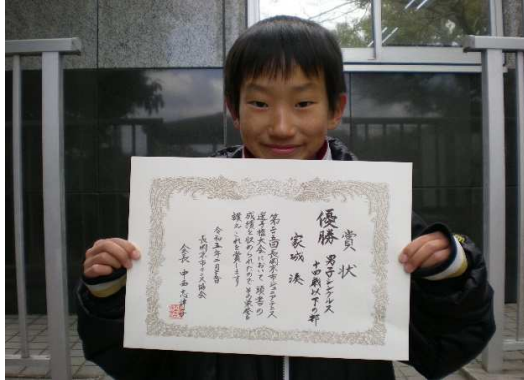 賞状
優勝 男子シングルス
十四歳以下の部
家城 湊
第二五回長岡京市ジュニアテニス
選手権大会において頭書の
成績を収められたのでその栄誉を
讃えこれを賞します
令和五年二月五日
長岡京市テニス協会
会長 中西